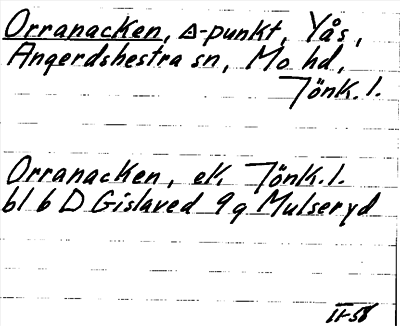 Orranacken, △-punkt, Yås,
Angerdshestra sn, Mo hd,
Jönk. l.
Orranacken, ek. Jönk. l.
bl 6 D Gislaved 9 g Mulseryd
II-56